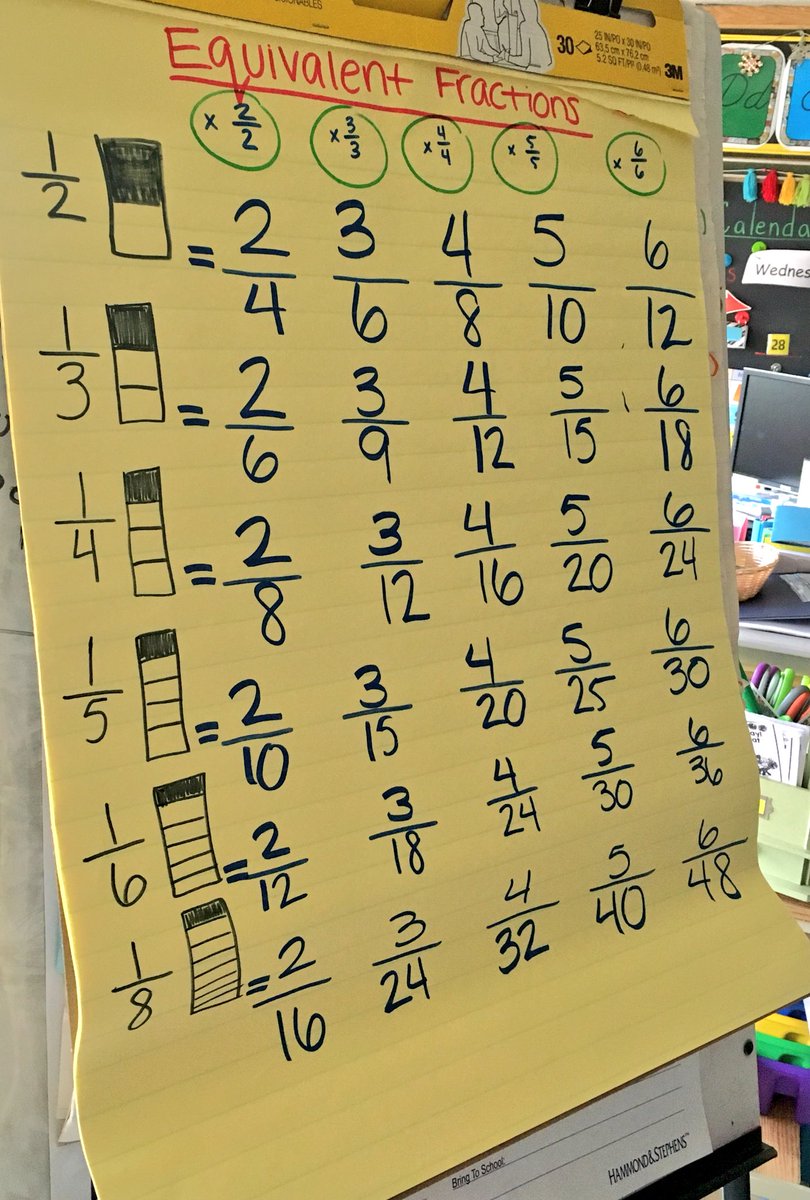 30
25 IN/PO x 30 IN/PO
63,5 cm x 76,2 cm
5.2 SQ FT/PD (0,48 m²)
3M
Equivalent Fractions
x 2/2 x 3/3 x 4/4 x 5/5 x 6/6
1/2 = 2/4 3/6 4/8 5/10 6/12
1/3 = 2/6 3/9 4/12 5/15 6/18
1/4 = 2/8 3/12 4/16 5/20 6/24
1/5 = 2/10 3/15 4/20 5/25 6/30
1/6 = 2/12 3/18 4/24 5/30 6/36
1/8 = 2/16 3/24 4/32 5/40 6/48
Dd
Calenda
Wednes
28
Bring To School:
HAMMOND & STEPHENS™